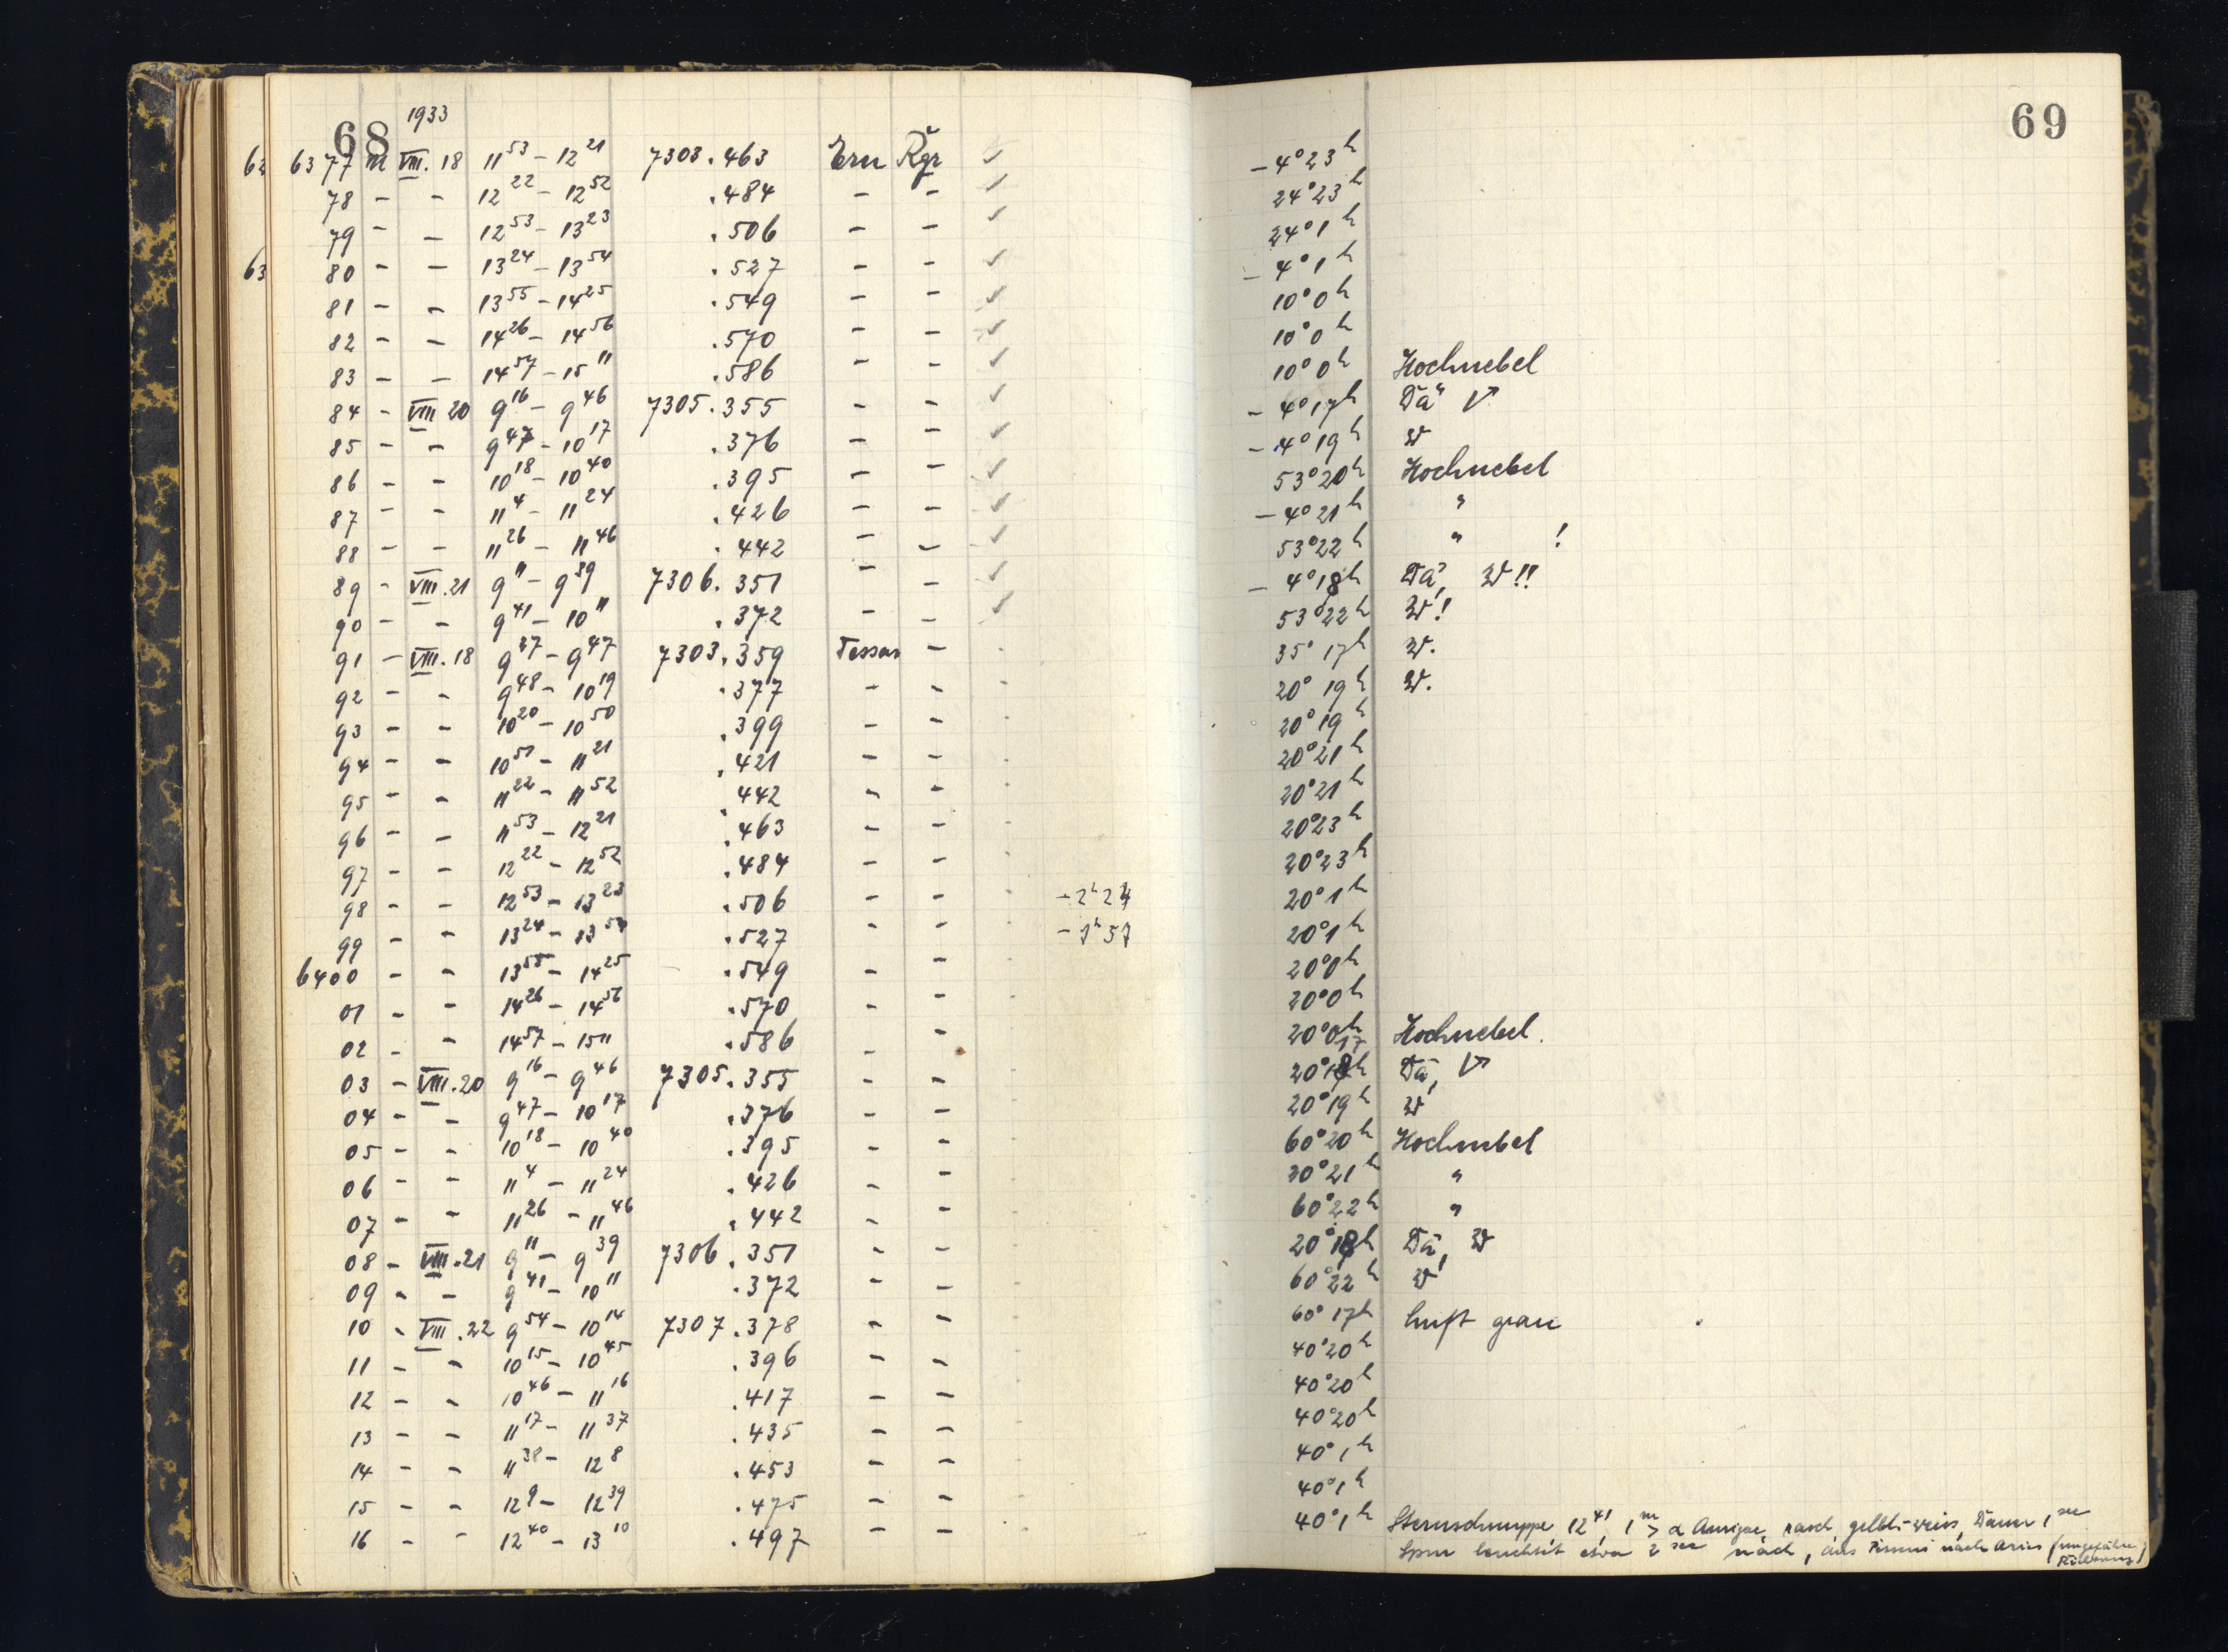 68
1933
62 6377 m VIII. 18 11 53 – 12 21 7303.463 Ern Rgr ✓
78 – – 12 22 – 12 52 .484 – – ✓
79 – – 12 53 – 13 23 .506 – – ✓
63 80 – – 13 24 – 13 54 .527 – – ✓
81 – – 13 55 – 14 25 .549 – – ✓
82 – – 14 26 – 14 56 .570 – – ✓
83 – – 14 57 – 15 11 .586 – – ✓
84 – VIII 20 9 16 – 9 46 7305.355 – – ✓
85 – – 9 47 – 10 17 .376 – – ✓
86 – – 10 18 – 10 40 .395 – – ✓
87 – – 11 4 – 11 24 .426 – – ✓
88 – – 11 26 – 11 46 .442 – – ✓
89 – VIII.21 9 11 – 9 39 7306.351 – – ✓
90 – – 9 41 – 10 11 .372 – – ✓
91 – VIII.18 9 37 – 9 47 7303.359 Tessar –
92 – – 9 48 – 10 19 .377 – –
93 – – 10 20 – 10 50 .399 – –
94 – – 10 51 – 11 21 .421 – –
95 – – 11 22 – 11 52 .442 – –
96 – – 11 53 – 12 21 .463 – –
97 – – 12 22 – 12 52 .484 – –
98 – – 12 53 – 13 23 .506 – –
99 – – 13 24 – 13 54 .527 – –
6400 – – 13 55 – 14 25 .549 – –
01 – – 14 26 – 14 56 .570 – –
02 – – 14 57 – 15 11 .586 – –
03 – VIII.20 9 16 – 9 46 7305.355 – –
04 – – 9 47 – 10 17 .376 – –
05 – – 10 18 – 10 40 .395 – –
06 – – 11 4 – 11 24 .426 – –
07 – – 11 26 – 11 46 .442 – –
08 – VIII.21 9 11 – 9 39 7306.351 – –
09 – – 9 41 – 10 11 .372 – –
10 – VIII.22 9 54 – 10 14 7307.378 – –
11 – – 10 15 – 10 45 .396 – –
12 – – 10 46 – 11 16 .417 – –
13 – – 11 17 – 11 37 .435 – –
14 – – 11 38 – 12 8 .453 – –
15 – – 12 9 – 12 39 .475 – –
16 – – 12 40 – 13 10 .497 – –
69
– 4° 23h
24° 23h
24° 1h
– 4° 1h
10° 0h
10° 0h
10° 0h Hochnebel
– 4° 17h Dä
– 4° 19h W
53° 20h Hochnebel
– 4° 21h "
53° 22h " !
– 4° 18h Dä, W!!
53° 22h W!
35° 17h W.
20° 19h W.
20° 19h
20° 21h
20° 21h
20° 23h
20° 23h
20° 1h
20° 1h
20° 0h
20° 0h
20° 0h Hochnebel.
20° 17h Dä,
20° 19h W
60° 20h Hochnebel
20° 21h "
60° 22h "
20° 18h Dä, W
60° 22h W
60° 17h Luft grau
40° 20h
40° 20h
40° 20h
40° 1h
40° 1h
40° 1h Sternschnuppe 12 41, 1m > α Aurigae, rasch, gelbl-weiss, Dauer 1 sec
Spur leuchtet etwa 2 sec nach, aus nach Aries (ungefähre
Richtung)